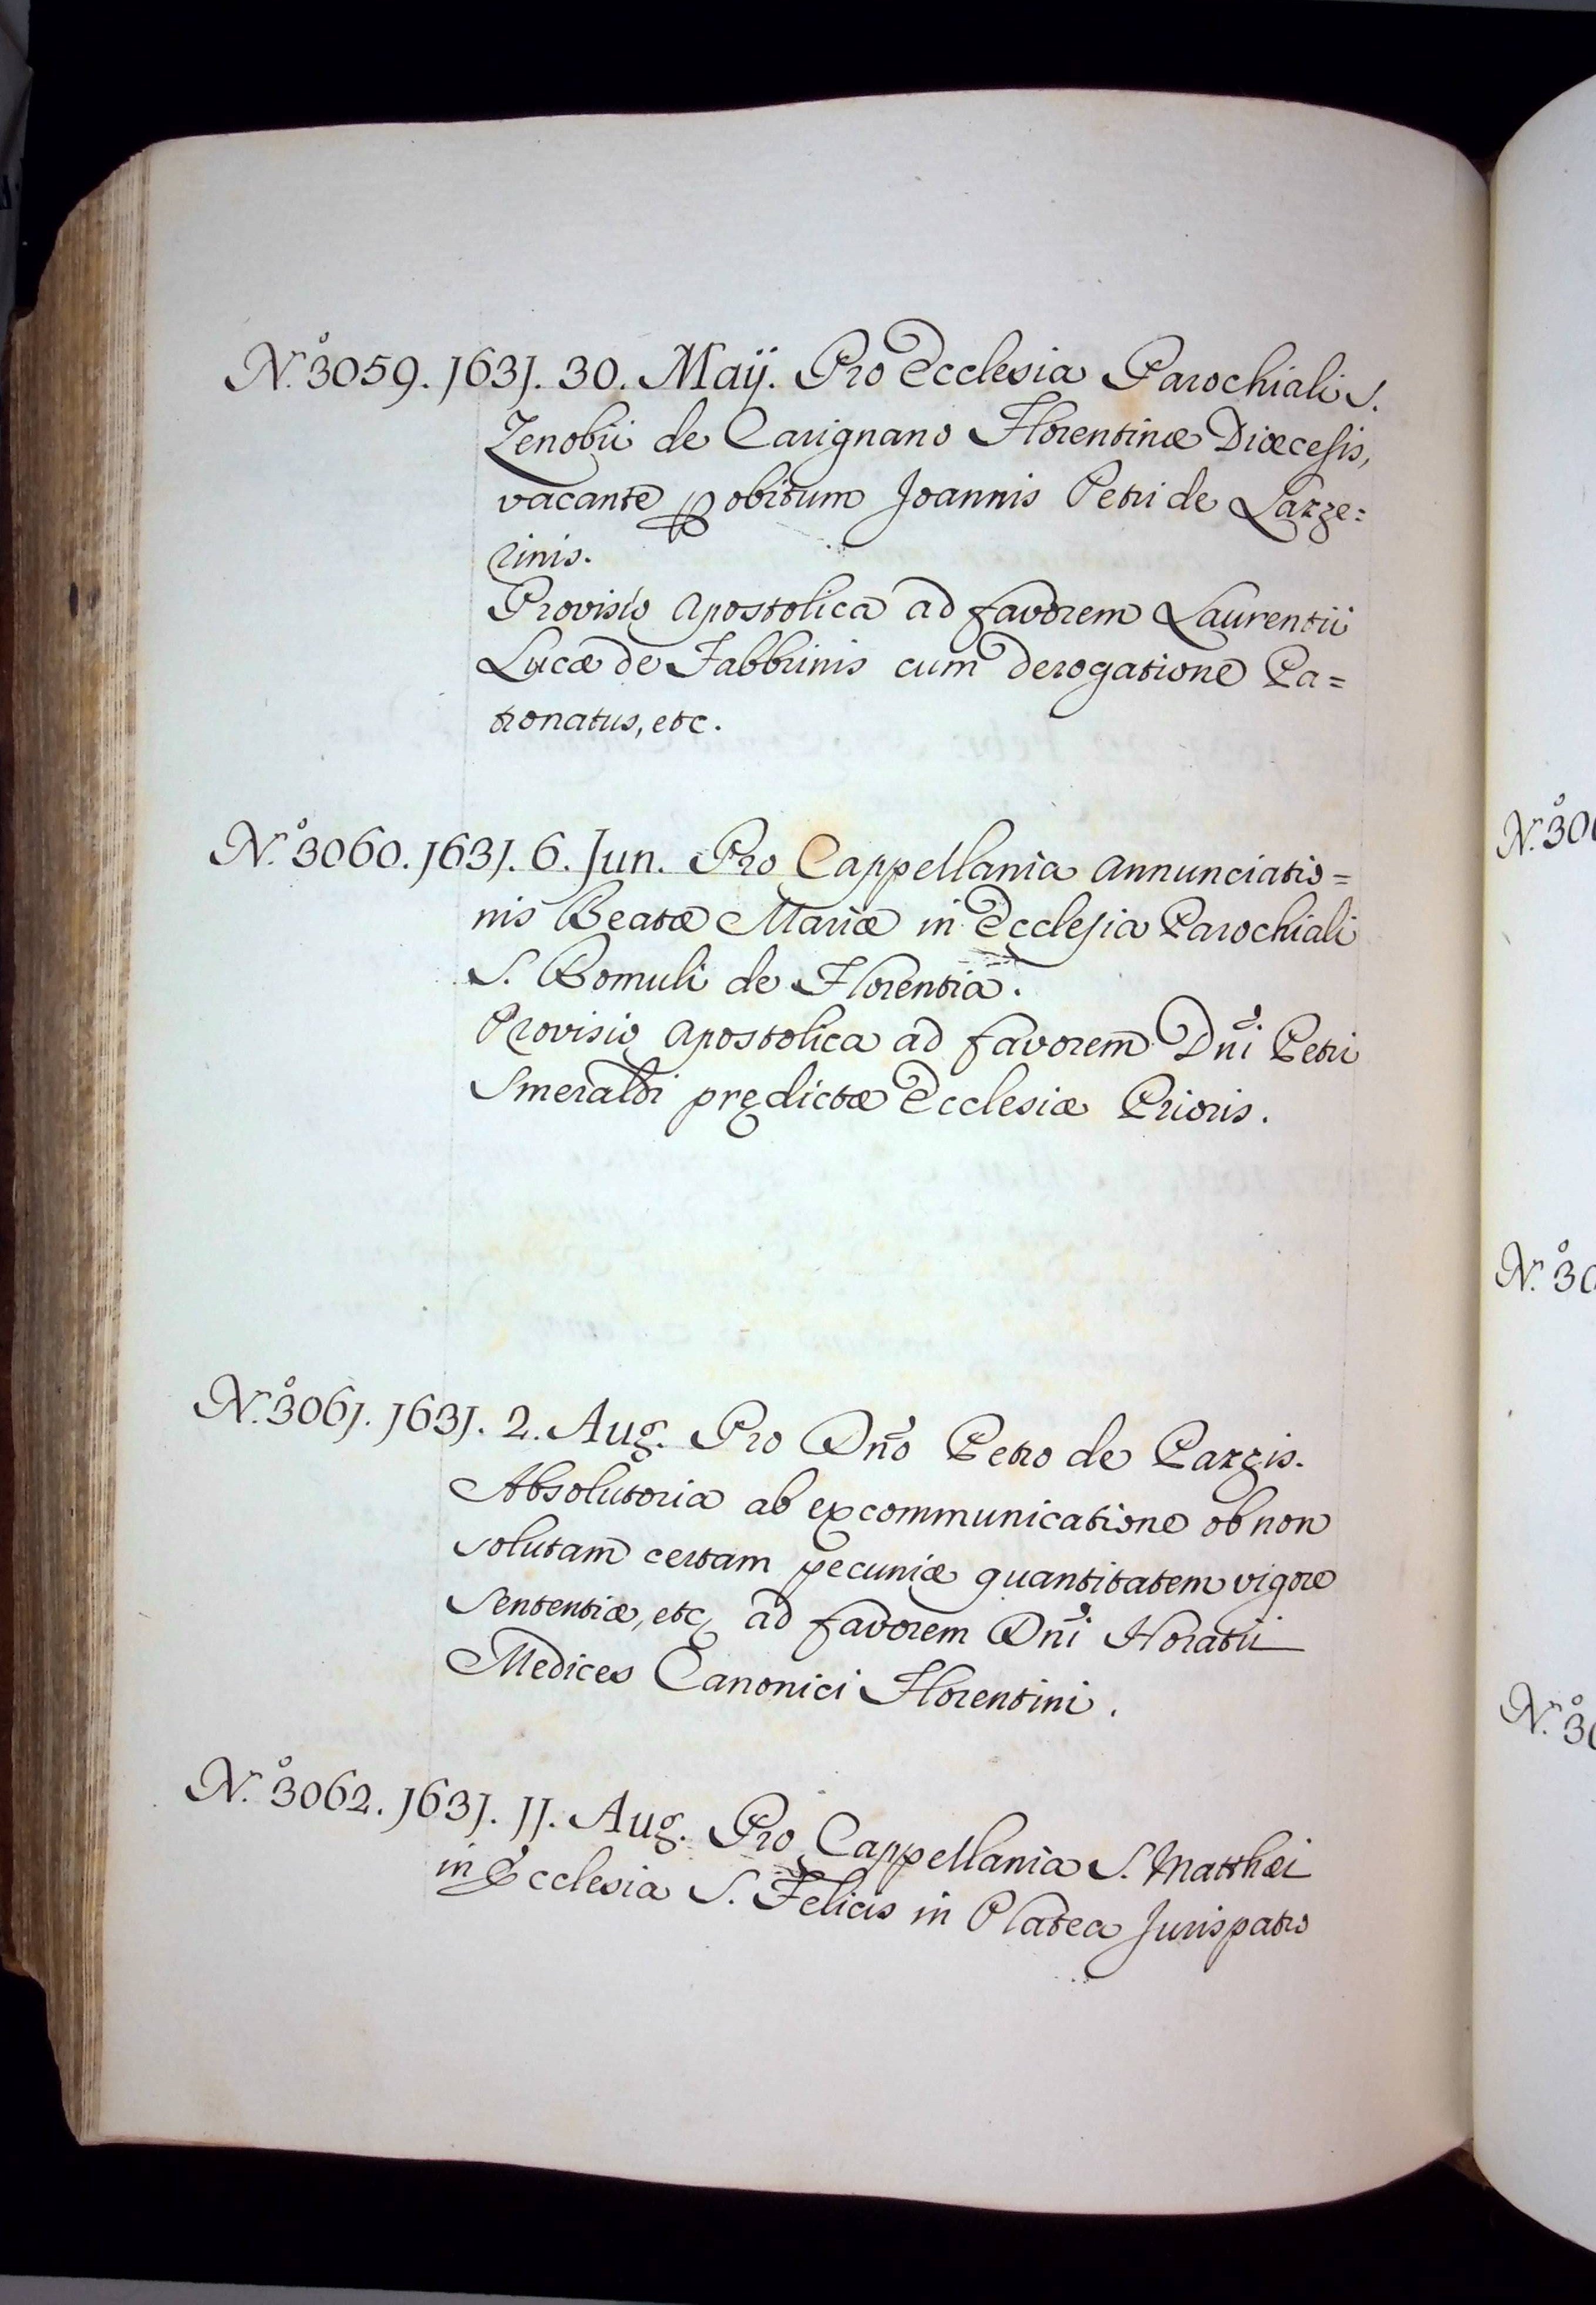 N.º 3059. 1631. 30. Maÿ. Pro Ecclesia Parochiali S.
Zenobii de Carignano Florentinæ Diœcesis,
vacante p obitum Joannis Petri de Lazze=
rinis.
Provisio Apostolica ad favorem Laurentii
Lucæ de Fabbrinis cum derogatione Pa=
tronatus, etc.
N.º 3060. 1631. 6. Jun. Pro Cappellania Annunciatio=
nis Beatæ Mariæ in Ecclesia Parochiali
S. Romuli de Florentia.
Provisio Apostolica ad favorem Dñi Petri
Smeraldi prędictæ Ecclesiæ Prioris.
N.º 3061. 1631. 2. Aug. Pro Dño Petro de Pazzis.
Absolutoria ab excommunicatione ob non
solutam certam pecuniæ quantitatem vigore
Sententiæ, etc, ad favorem Dñi Horatii
Medices Canonici Florentini.
N.º 3062. 1631. 11. Aug. Pro Cappellania S. Matthæi
in Ecclesia S. Felicis in Platea Jurispatro
N.º 30
N.º 30
N.º 30